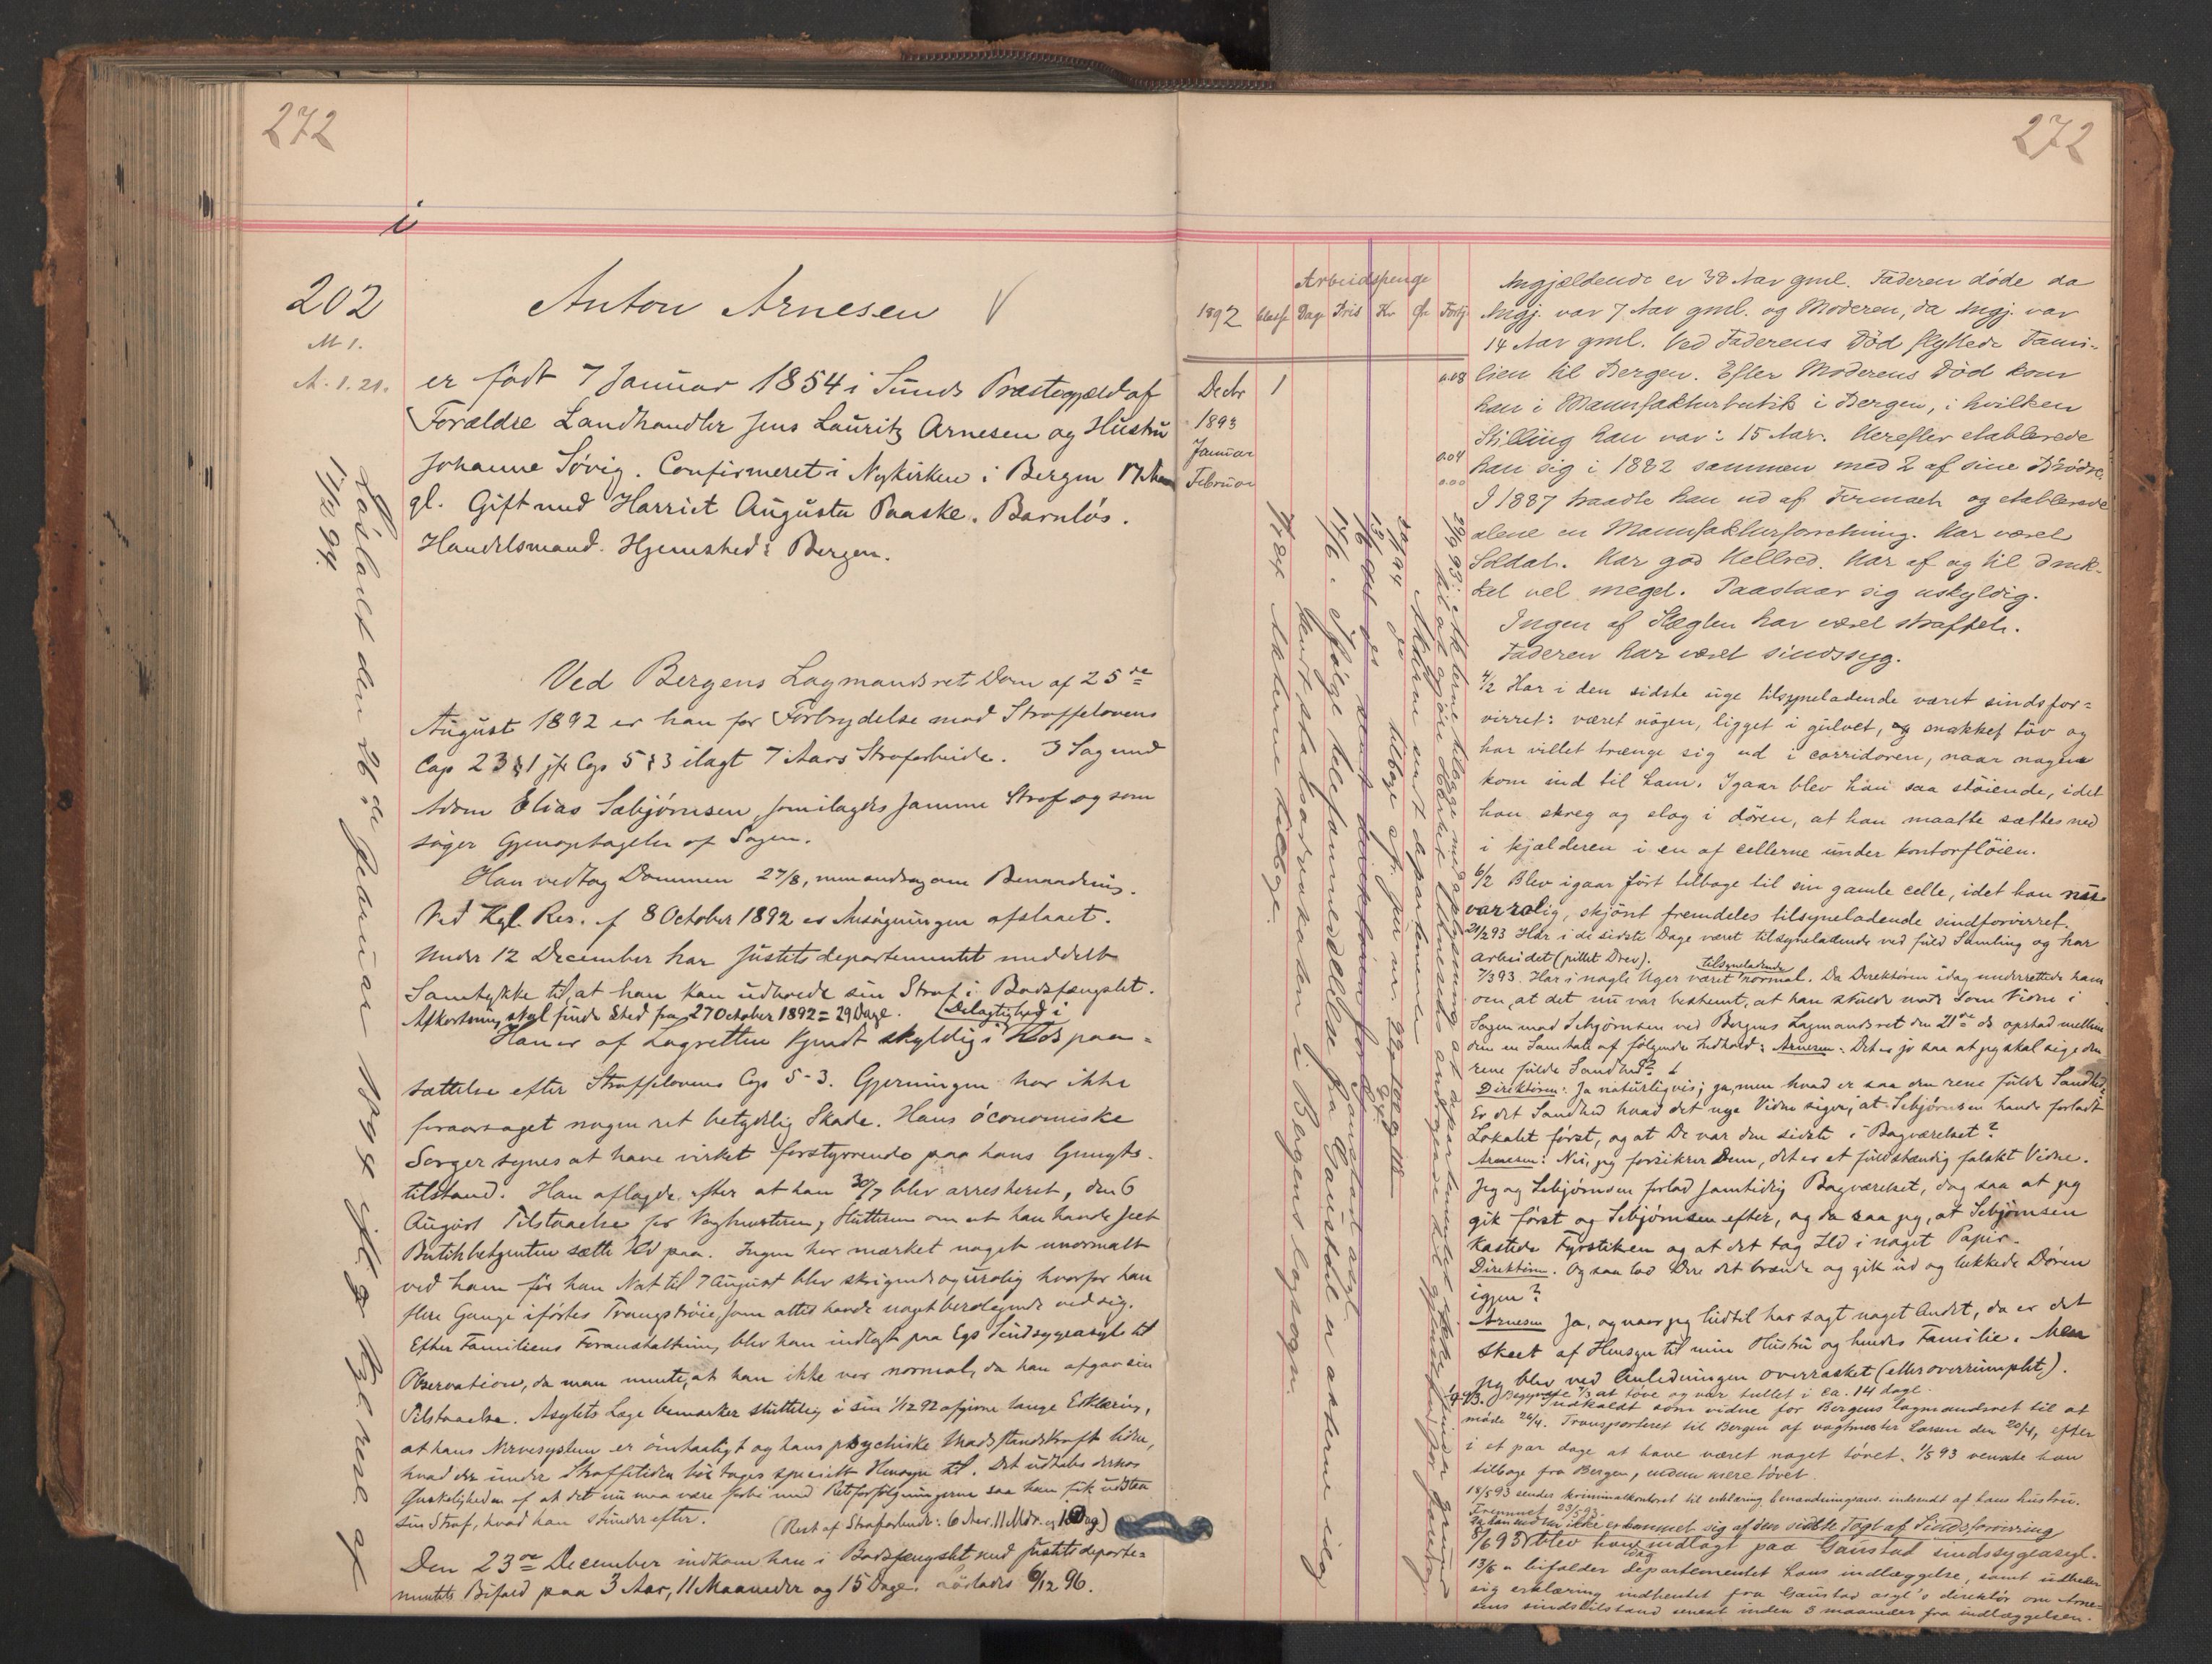 272
i
202
M 1.
A. 1. 21.
Anton Arnesen V
er født 7 Januar 1854 i Sunds Præstegjæld af
Forældre Landhandler Jens Lauritz Arnesen og Hustru
Johanne Søvig. Confirmeret i Nykirken i Bergen 17 Aar
gl. Gift med Harriet Augusta Paaske. Barnløs.
Handelsmand. Hjemsted: Bergen.
Ved Bergens Lagmandsret Dom af 25de
August 1892 er han for Forbrydelse mod Straffelovens
Cap 23 § 1 jfr Cap 5 § 3 ilagt 7 Aars Strafarbeide. I Sag med
Adom Elias Sæbjørnsen, som ilagdes samme Straf og som
søger Gjenoptagelse af Sagen.
Han vedtog Dommen 27/8, men androg om Benaadning.
Ved Kgl. Res. af 8 October 1892 er Ansøgningen afslaaet.
Under 12 December har Justitsdepartementet meddelt
Samtykke til, at han kan udholde sin Straf i Bodsfængslet.
Afkortning skal finde Sted fra 27 October 1892 = 29 Dage.
Han er af Lagretten kjendt skyldig i Delagtighed i Ildspaa=
sættelse efter Straffelovens Cap 5-3. Gjerningen har ikke
foraarsaget nogen ret betydelig Skade. Hans øconomiske
Sorger synes at have virket forstyrrende paa hans Gemyts-
tilstand. Han aflagde, efter at han 30/7 blev arresteret, den 6
August Tilstaaelse for Vagtmesteren, Slutteren om at han havde seet
Butikbetjenten sætte Ild paa. Ingen har mærket noget unormalt
ved ham før han Nat til 7 August blev skrigende og urolig hvorfor han
flere Gange iførtes Trangstrøie, som altid havde noget beroligende ved sig.
Efter Familiens Foranstaltning blev han indlagt paa Egs Sindsygeasyl til
Observation, da man mente, at han ikke var normal, da han afgav sin
Tilstaaelse. Asylets Læge bemærker sluttelig i sin 1/12 92 afgivne lange Erklæring,
at hans Nervesystem er ømtaaligt og hans psychiske Modstandskraft liden,
hvad der under Straffetiden bør tages specielt Hensyn til. Det udtales derhos
Ønskeligheden af at det nu maa være forbi med Retsforfølgningerne saa han fik udstaa
sin Straf, hvad han stunder efter. (Rest af Strafarbeide: 6 Aar, 11 Mdr. og 1 Dag)
Den 23de December indkom han i Bodsfængslet med Justitsdeparte=
mentets Bifald paa 3 Aar, 11 Maaneder og 15 Dage. Løslades 9/12 96.
Løsladt den 26de Februar 1894 ifølge Kgl. res. af
17/2 94.
272
Arbeidspenge
1892 Classe Dage Pris Kr Ør Fortj
Decbr 1 0.08
1893
Januar 0.04
Februar 0.00
Angjældende er 38 Aar gml. Faderen døde da
Angj. var 7 Aar gml. og Moderen, da Angj. var
14 Aar gml. Ved Faderens Død flyttede Fami-
lien til Bergen. Efter Moderens Død kom
han i Manufakturbutik i Bergen, i hvilken
Stilling han var i 15 Aar. Herefter etablerede
han sig i 1882 sammen med 2 af sine Brødre.
I 1887 traadte han ud af Firmaet og etablerede
alene en Manufakturforretning. Har været
Soldat. Har god Helbred. Har af og til druk-
ket vel meget. Paastaar sig uskyldig.
Ingen af Slægten har været straffet.
Faderen har været sindssyg.
4/2 Har i den sidste uge tilsyneladende været sindsfor=
virret: været nøgen, ligget i gulvet, og snakket tøv og
har villet trænge sig ud i corridoren, naar nogen
kom ind til ham. Igaar blev han saa støiende, idet
han skreg og slog i døren, at han maatte sættes ned
i kjælderen i en af cellerne under kontorfløien.
6/2 Blev igaar ført tilbage til sin gamle celle, idet han nu
var rolig, skjønt fremdeles tilsyneladende sindforvirret.
21/2 93 Har i de sidste Dage været tilsyneladende ved fuld Samling og har
arbeidet (pillet Drev).
7/3 93. Har i nogle Uger været tilsyneladende normal. Da Direktøren idag underrettede ham
om, at det nu var bestemt, at han skulde møde som Vidne i
Sagen mod Sebjørnsen ved Bergens Lagmandsret den 21de ds opstod mellem
dem en Samtale af følgende Indhold: Arnesen: Det er jo saa at jeg skal sige den
rene fulde Sandhed?
Direktøren: Ja naturligvis; ja, men hvad er saa den rene fulde Sandhed?
Er det Sandhed hvad det nye Vidne siger, at Sebjørnsen havde forladt
Lokalet først, og at De var den sidste i Bagværelset?
Arnesen: Nei, jeg forsikrer Dem, det er et fuldstændig falskt Vidne.
Jeg og Sebjørnsen forlod samtidig Bagværelset, dog saa at jeg
gik først og Sebjørnsen efter, og da saa jeg, at Sebjørnsen
kastede Fyrstikken og at det tog Ild i noget Papir.
Direktøren. Og saa lod Dere det brænde og gik ud og lukkede Døren
igjen?
Arnesen Ja, og naar jeg hidtil har sagt noget Andet, da er det
skeet af Hensyn til min Hustru og hendes Familie. Men
jeg blev ved Anledningen overrasket (eller overrumplet).
Begyndte 7/3 at tøve og var tullet i ca. 14 dage.
Indkaldt som vidne for Bergens lagmandsret til at
møde 24/4. Transporteret til Bergen af vagtmester Larsen den 20/4, efter
i et par dage at have været noget tøvet. 1/5 93 vendte han
tilbage fra Bergen, endnu mere tøvet.
18/5 93 sender kriminalkontoret til erklæring benaadningsans. indsendt af hans hustru.
Fremmet 23/5 93.
Da han endnu ikke er kommet sig af den sidste Togt af Sindsforvirring
8/6 93 blev han idag indlagt paa Gaustad sindssygeasyl.
13/6 " bifalder departementet hans indlæggelse, samt udbeder
sig erklæring indhentet fra Gaustad asyl's direktør om Arne=
sens sindstilstand senest inden 3 maaneder fra indlæggelsen.